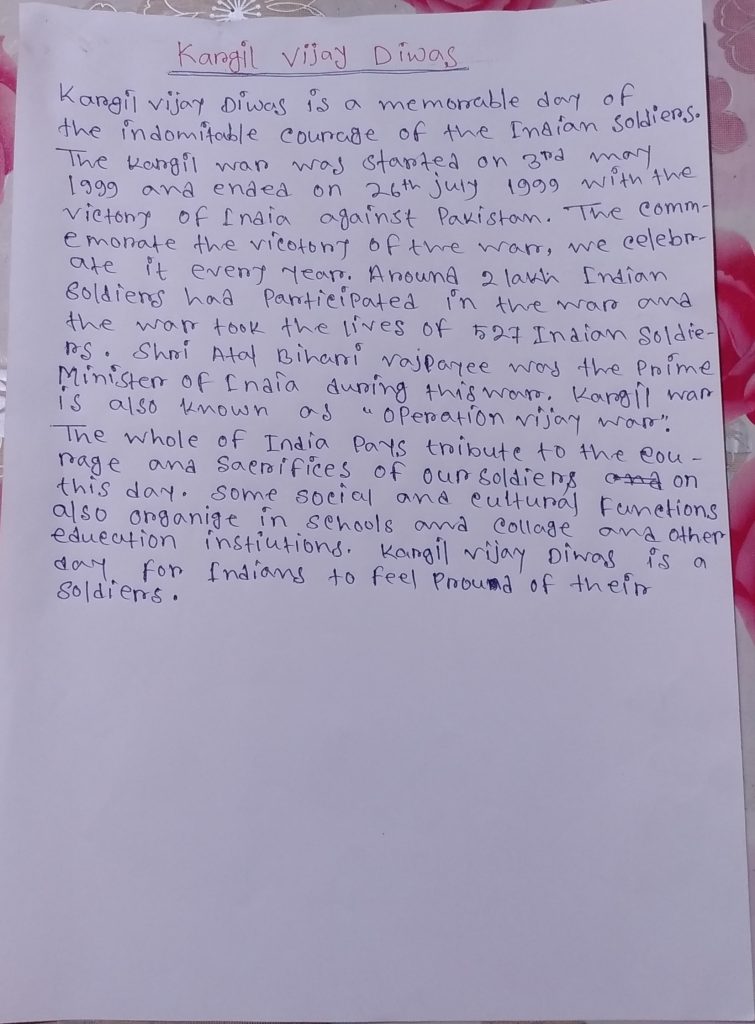 Kargil Vijay Diwas
Kargil vijay Diwas is a memorable day of
the indomitable courage of the Indian Soldiers.
The kargil war was started on 3rd may
1999 and ended on 26th july 1999 with the
victory of India against Pakistan. The comm-
emorate the vicotory of the war, we celebr-
ate it every year. Around 2 lakh Indian
Soldiers had Participated in the war and
the war took the lives of 527 Indian Soldie-
rs. Shri Atal Bihari vajpayee was the Prime
Minister of India during this war. Kargil war
is also known as "Operation vijay war".
The whole of India Pays tribute to the cou-
rage and Sacrifices of our Soldiers and on
this day. Some social and cultural Functions
also organige in schools and collage and other
education instiutions. Kargil vijay Diwas is a
day for Indians to feel Pround of their
Soldiers.